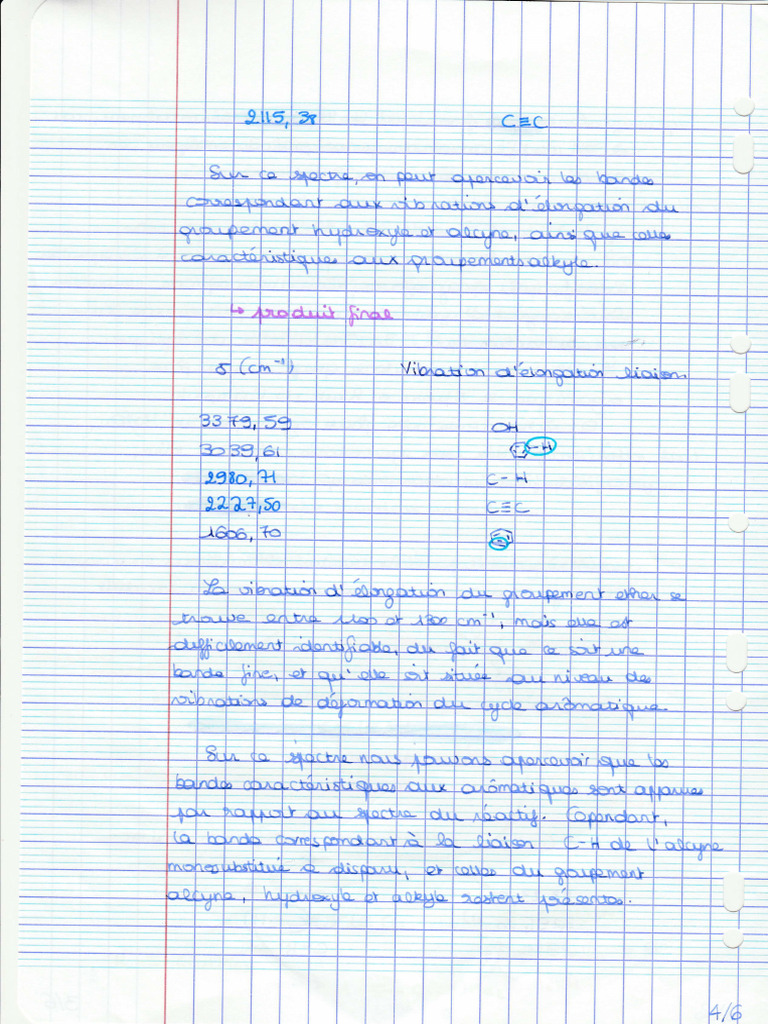 2115,38 C≡C
Sur ce spectre, on peut apercevoir les bandes
correspondant aux vibrations d'élongation du
groupement hydroxyle et alcyne, ainsi que celles
caractéristiques aux groupements alkyle.
↳ produit final
σ (cm⁻¹) Vibration d'élongation liaison
3379,59 OH
3039,61 -H
2980,71 C-H
2227,50 C≡C
1606,70
La vibration d'élongation du groupement ether se
trouve entre 1100 et 1300 cm⁻¹, mais elle est
difficilement identifiable, du fait que ce soit une
bande fine, et qu'elle soit située au niveau des
vibrations de déformation du cycle aromatique.
Sur ce spectre nous pouvons apercevoir que les
bandes caractéristiques aux arômatiques sont apparues
par rapport au spectre du réactif. Cependant,
la bande correspondant à la liaison C-H de l'alcyne
monosubstitué a disparu, et celles du groupement
alcyne, hydroxyle et alkyle restent présentes.
4/6